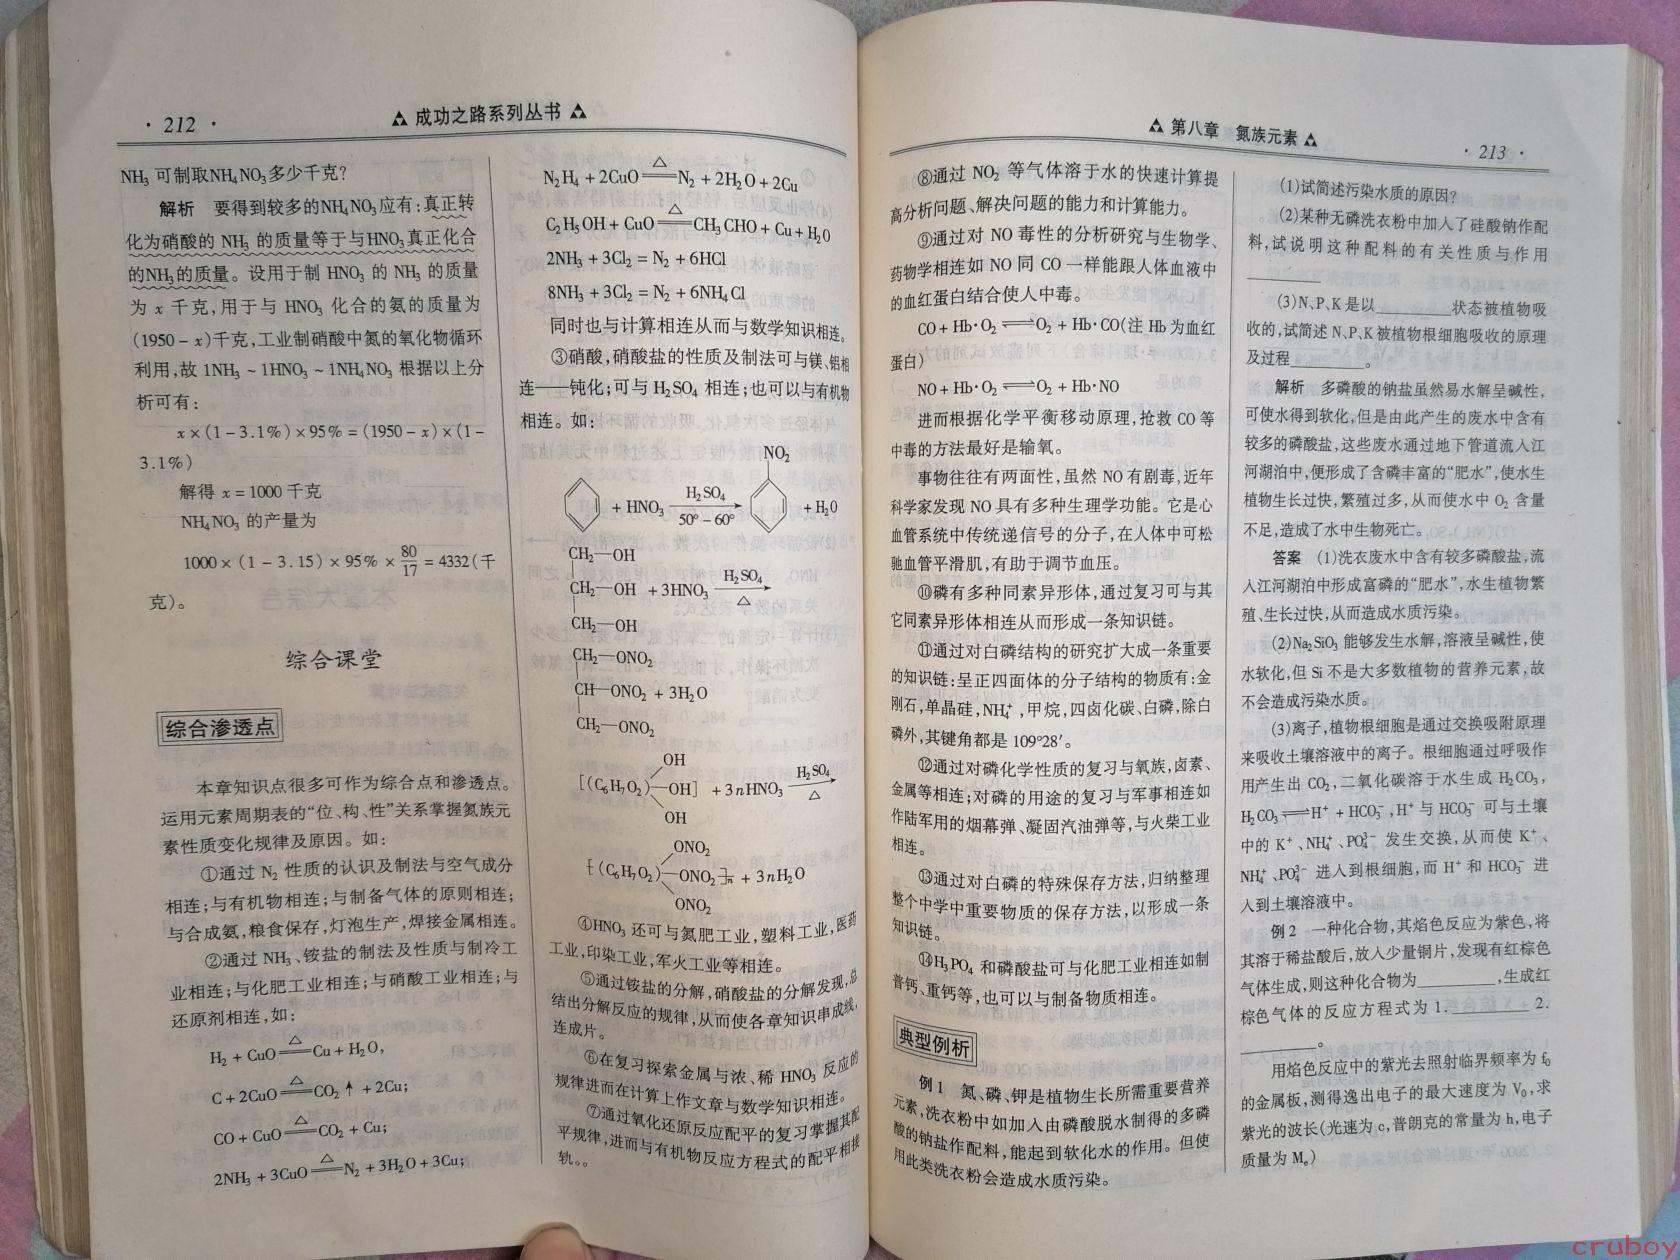 · 212 ·
成功之路系列丛书
NH₃ 可制取NH₄NO₃多少千克?
解析 要得到较多的NH₄NO₃应有:真正转
化为硝酸的 NH₃ 的质量等于与HNO₃真正化合
的NH₃的质量。设用于制 HNO₃ 的 NH₃ 的质量
为 x 千克,用于与 HNO₃ 化合的氨的质量为
(1950-x)千克,工业制硝酸中氮的氧化物循环
利用,故 1NH₃ ~ 1HNO₃ ~ 1NH₄NO₃ 根据以上分
析可有:
x×(1-3.1%)×95% = (1950-x)×(1-
3.1%)
解得 x = 1000 千克
NH₄NO₃ 的产量为
1000×(1-3.15)×95%×80/17 = 4332(千
克)。
综合课堂
综合渗透点
本章知识点很多可作为综合点和渗透点。
运用元素周期表的“位、构、性”关系掌握氮族元
素性质变化规律及原因。如:
①通过 N₂ 性质的认识及制法与空气成分
相连;与有机物相连;与制备气体的原则相连;
与合成氨,粮食保存,灯泡生产,焊接金属相连。
②通过 NH₃、铵盐的制法及性质与制冷工
业相连;与化肥工业相连;与硝酸工业相连;与
还原剂相连,如:
H₂ + CuO =△= Cu + H₂O,
C + 2CuO =△= CO₂↑ + 2Cu;
CO + CuO =△= CO₂ + Cu;
2NH₃ + 3CuO =△= N₂ + 3H₂O + 3Cu;
N₂H₄ + 2CuO =△= N₂ + 2H₂O + 2Cu
C₂H₅OH + CuO =△= CH₃CHO + Cu + H₂O
2NH₃ + 3Cl₂ = N₂ + 6HCl
8NH₃ + 3Cl₂ = N₂ + 6NH₄Cl
同时也与计算相连从而与数学知识相连。
③硝酸,硝酸盐的性质及制法可与镁、铝相
连——钝化;可与 H₂SO₄ 相连;也可以与有机物
相连。如:
NO₂
+ HNO₃ H₂SO₄ 50°-60° + H₂O
CH₂—OH
CH₂—OH + 3HNO₃ H₂SO₄ △
CH₂—OH
CH₂—ONO₂
CH—ONO₂ + 3H₂O
CH₂—ONO₂
OH
[(C₆H₇O₂)—OH] + 3nHNO₃ H₂SO₄ △
OH
ONO₂
[(C₆H₇O₂)—ONO₂]ₙ + 3nH₂O
ONO₂
④HNO₃ 还可与氮肥工业,塑料工业,医药
工业,印染工业,军火工业等相连。
⑤通过铵盐的分解,硝酸盐的分解发现,总
结出分解反应的规律,从而使各章知识串成线,
连成片。
⑥在复习探索金属与浓、稀 HNO₃ 反应的
规律进而在计算上作文章与数学知识相连。
⑦通过氧化还原反应配平的复习掌握其配
平规律,进而与有机物反应方程式的配平相接
轨。。
第八章 氮族元素
· 213 ·
⑧通过 NO₂ 等气体溶于水的快速计算提
高分析问题、解决问题的能力和计算能力。
⑨通过对 NO 毒性的分析研究与生物学、
药物学相连如 NO 同 CO 一样能跟人体血液中
的血红蛋白结合使人中毒。
CO + Hb·O₂ ⇌ O₂ + Hb·CO(注 Hb 为血红
蛋白)
NO + Hb·O₂ ⇌ O₂ + Hb·NO
进而根据化学平衡移动原理,抢救 CO 等
中毒的方法最好是输氧。
事物往往有两面性,虽然 NO 有剧毒,近年
科学家发现 NO 具有多种生理学功能。它是心
血管系统中传统递信号的分子,在人体中可松
驰血管平滑肌,有助于调节血压。
⑩磷有多种同素异形体,通过复习可与其
它同素异形体相连从而形成一条知识链。
⑪通过对白磷结构的研究扩大成一条重要
的知识链:呈正四面体的分子结构的物质有:金
刚石,单晶硅,NH₄⁺,甲烷,四卤化碳、白磷,除白
磷外,其键角都是 109°28′。
⑫通过对磷化学性质的复习与氧族,卤素、
金属等相连;对磷的用途的复习与军事相连如
作陆军用的烟幕弹、凝固汽油弹等,与火柴工业
相连。
⑬通过对白磷的特殊保存方法,归纳整理
整个中学中重要物质的保存方法,以形成一条
知识链。
⑭H₃PO₄ 和磷酸盐可与化肥工业相连如制
普钙、重钙等,也可以与制备物质相连。
典型例析
例 1 氮、磷、钾是植物生长所需重要营养
元素,洗衣粉中如加入由磷酸脱水制得的多磷
酸的钠盐作配料,能起到软化水的作用。但使
用此类洗衣粉会造成水质污染。
(1)试简述污染水质的原因?
(2)某种无磷洗衣粉中加入了硅酸钠作配
料,试说明这种配料的有关性质与作用
________
(3)N、P、K是以________状态被植物吸
收的,试简述 N、P、K 被植物根细胞吸收的原理
及过程________。
解析 多磷酸的钠盐虽然易水解呈碱性,
可使水得到软化,但是由此产生的废水中含有
较多的磷酸盐,这些废水通过地下管道流入江
河湖泊中,便形成了含磷丰富的“肥水”,使水生
植物生长过快,繁殖过多,从而使水中 O₂ 含量
不足,造成了水中生物死亡。
答案 (1)洗衣废水中含有较多磷酸盐,流
入江河湖泊中形成富磷的“肥水”,水生植物繁
殖、生长过快,从而造成水质污染。
(2)Na₂SiO₃ 能够发生水解,溶液呈碱性,使
水软化,但 Si 不是大多数植物的营养元素,故
不会造成污染水质。
(3)离子,植物根细胞是通过交换吸附原理
来吸收土壤溶液中的离子。根细胞通过呼吸作
用产生出 CO₂,二氧化碳溶于水生成 H₂CO₃,
H₂CO₃ ⇌ H⁺ + HCO₃⁻,H⁺ 与 HCO₃⁻ 可与土壤
中的 K⁺、NH₄⁺、PO₄³⁻ 发生交换,从而使 K⁺、
NH₄⁺、PO₄³⁻ 进入到根细胞,而 H⁺ 和 HCO₃⁻ 进
入到土壤溶液中。
例 2 一种化合物,其焰色反应为紫色,将
其溶于稀盐酸后,放入少量铜片,发现有红棕色
气体生成,则这种化合物为________,生成红
棕色气体的反应方程式为 1.________ 2.
________。
用焰色反应中的紫光去照射临界频率为 f₀
的金属板,测得逸出电子的最大速度为 V₀,求
紫光的波长(光速为 c,普朗克的常量为 h,电子
质量为 Mₑ)
cruboy